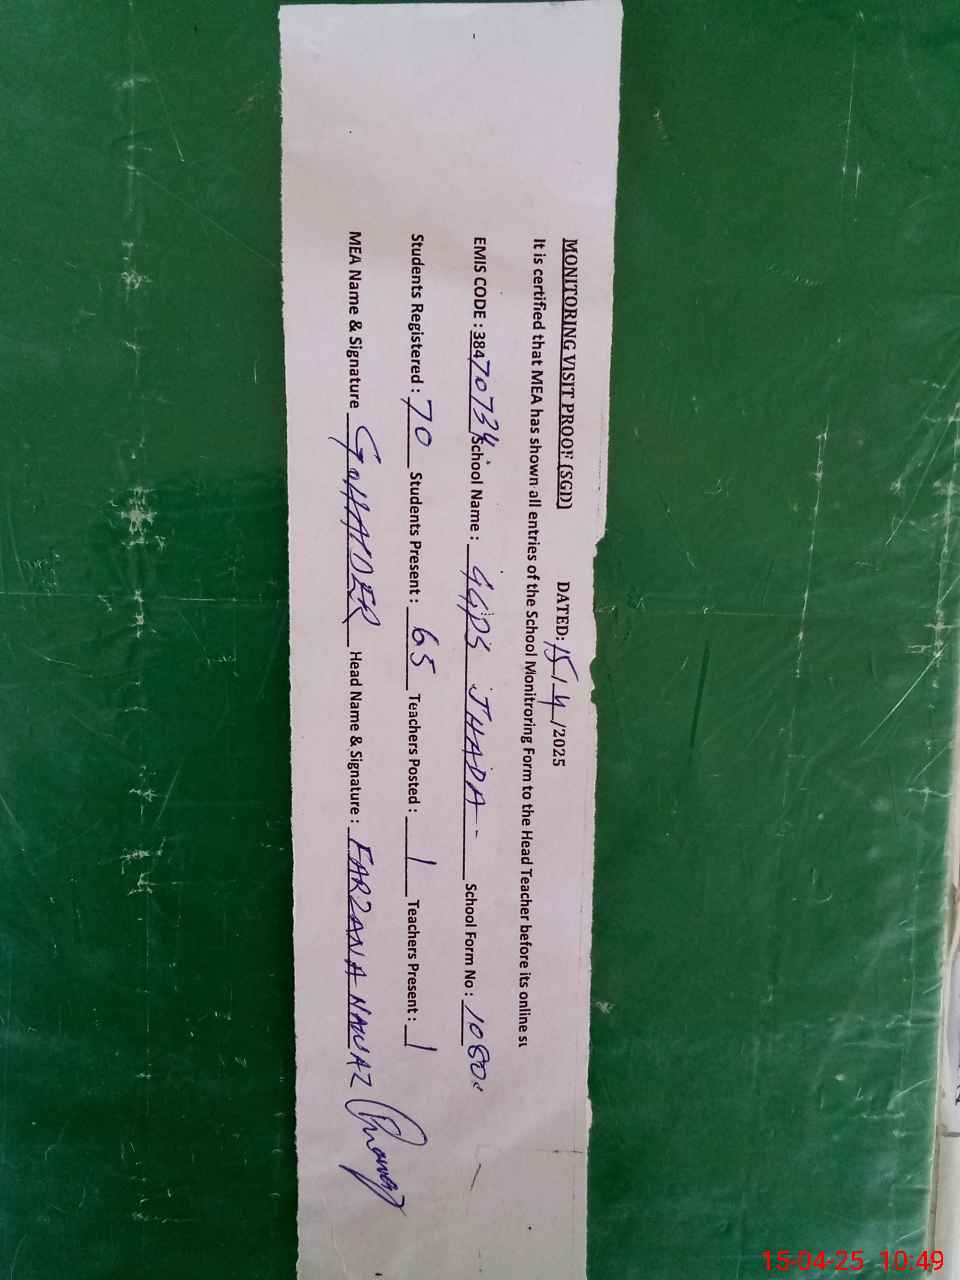 MONITORING VISIT PROOF (SGD) DATED: 15/4/2025
It is certified that MEA has shown all entries of the School Monitroring Form to the Head Teacher before its online su
EMIS CODE : 38470734 School Name : GGPS JHADA School Form No : 1080
Students Registered : 70 Students Present : 65 Teachers Posted : 1 Teachers Present : 1
MEA Name & Signature G.HAYDER Head Name & Signature : FARZANA NAWAZ
15-04-25 10:49